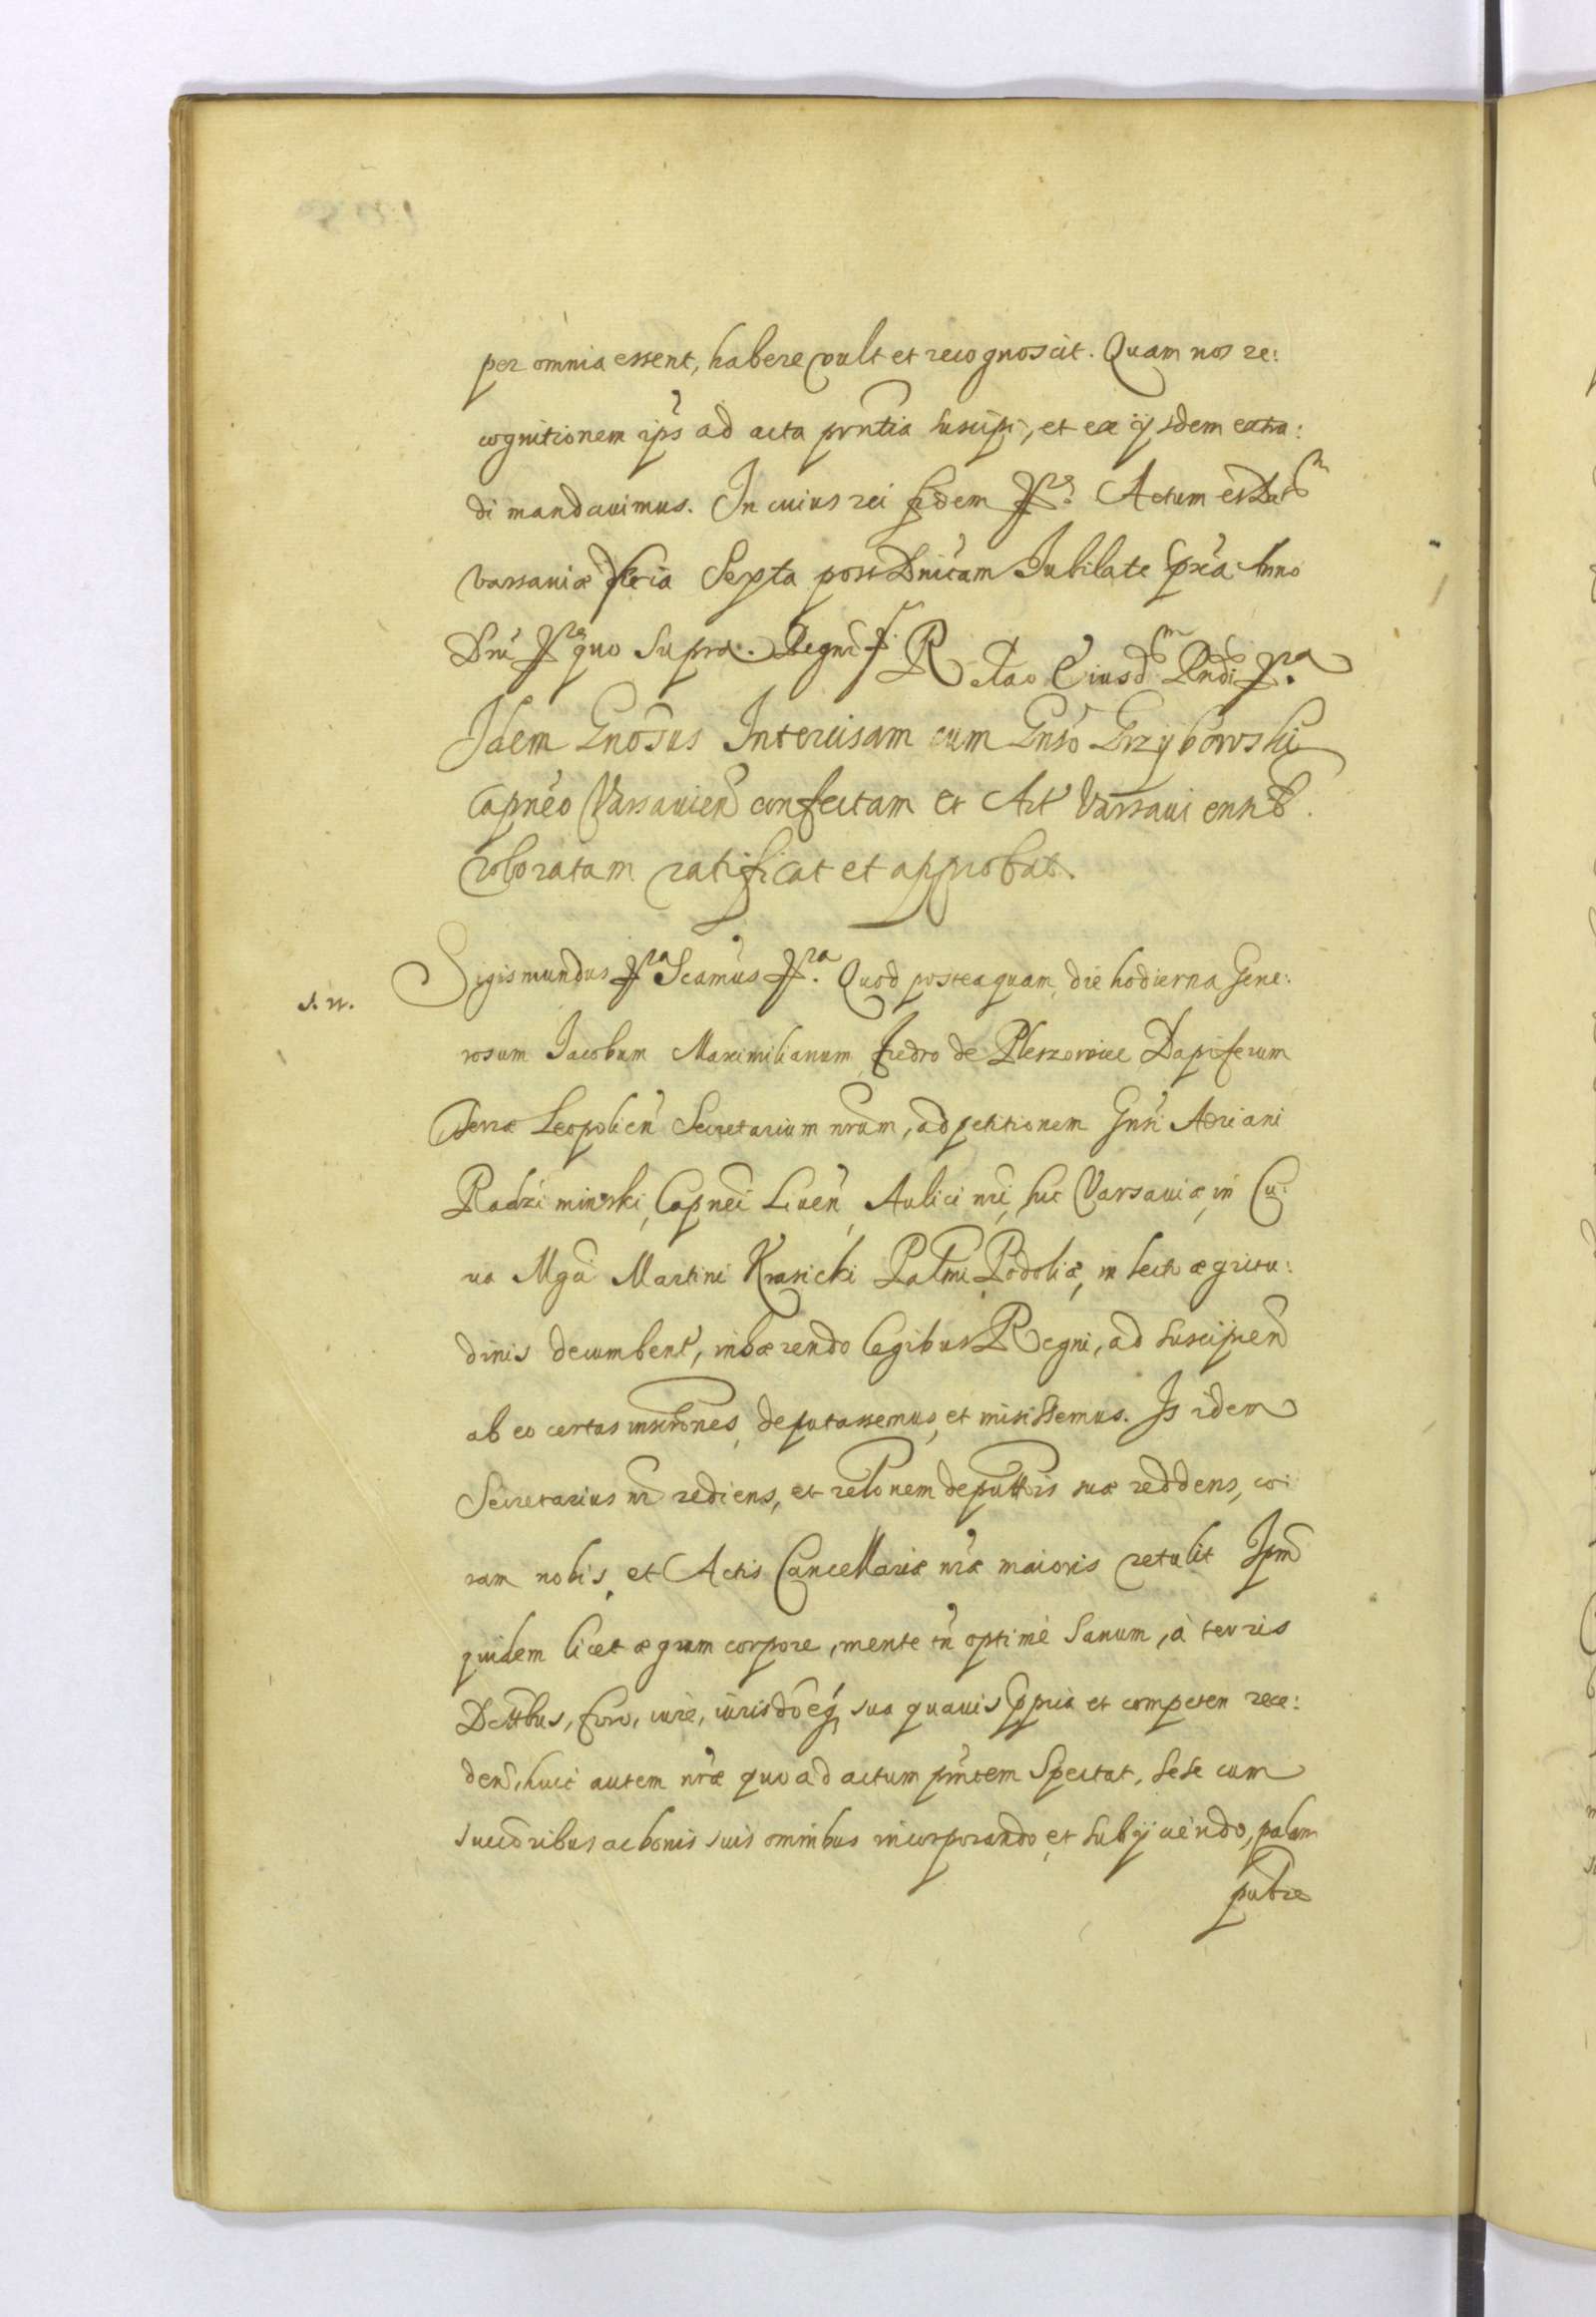 per omnia essent, habere vult et recognoscit. Quam nos re:
cognitionem ips ad acta pnntia suscipi, et ex ijsdem extra:
di mandauimus. In cuius rei fidem pra. Actum et Datm
Varsauiæ feria Sexta post Dnicam Iubilate pxa Anno
Dni pra quo supra. Regni
Rlao Eiusdm Pndi pra
Idem Gnosus Intercisam cum Gnso Grzybowski
Capneo Varsauien confectam et Act Varsauienn
roboratam ratificat et approbat.
Sigismundus pra Scamus pra. Quod posteaquam die hodierna Gene:
s. n.
rosum Iacobum Maximilianum Fredro de Pleszowice Dapiferum
Terræ Leopolien Secretarium nrum, ad petitionem Gnsi Adriani
Radziminski, Capnei Liuen, Aulici nri, hic Varsauiæ, in Cu:
ria Mgci Martini Krasicki Paltni Podoliæ, in lecto ægritu:
dinis decumbent, inhærendo legibus Regni, ad suscipien
ab eo certas inscrones, deputassemus, et misissemus. Is idem
Secretarius nr rediens, et relonem deputtois suæ reddens, co:
ram nobis, et Actis Cancellariæ nræ maioris retulit Ipm
quidem licet ægrum corpore, mente tn optimè sanum, à terris
Dcttbus, foro, iure, iurisdoeq sua quauis ppria et competen rece:
den, huic autem nræ quo ad actum pntem spectat, sese cum
succoribus ac bonis suis omnibus incorporando et subijciendo, palam
publce